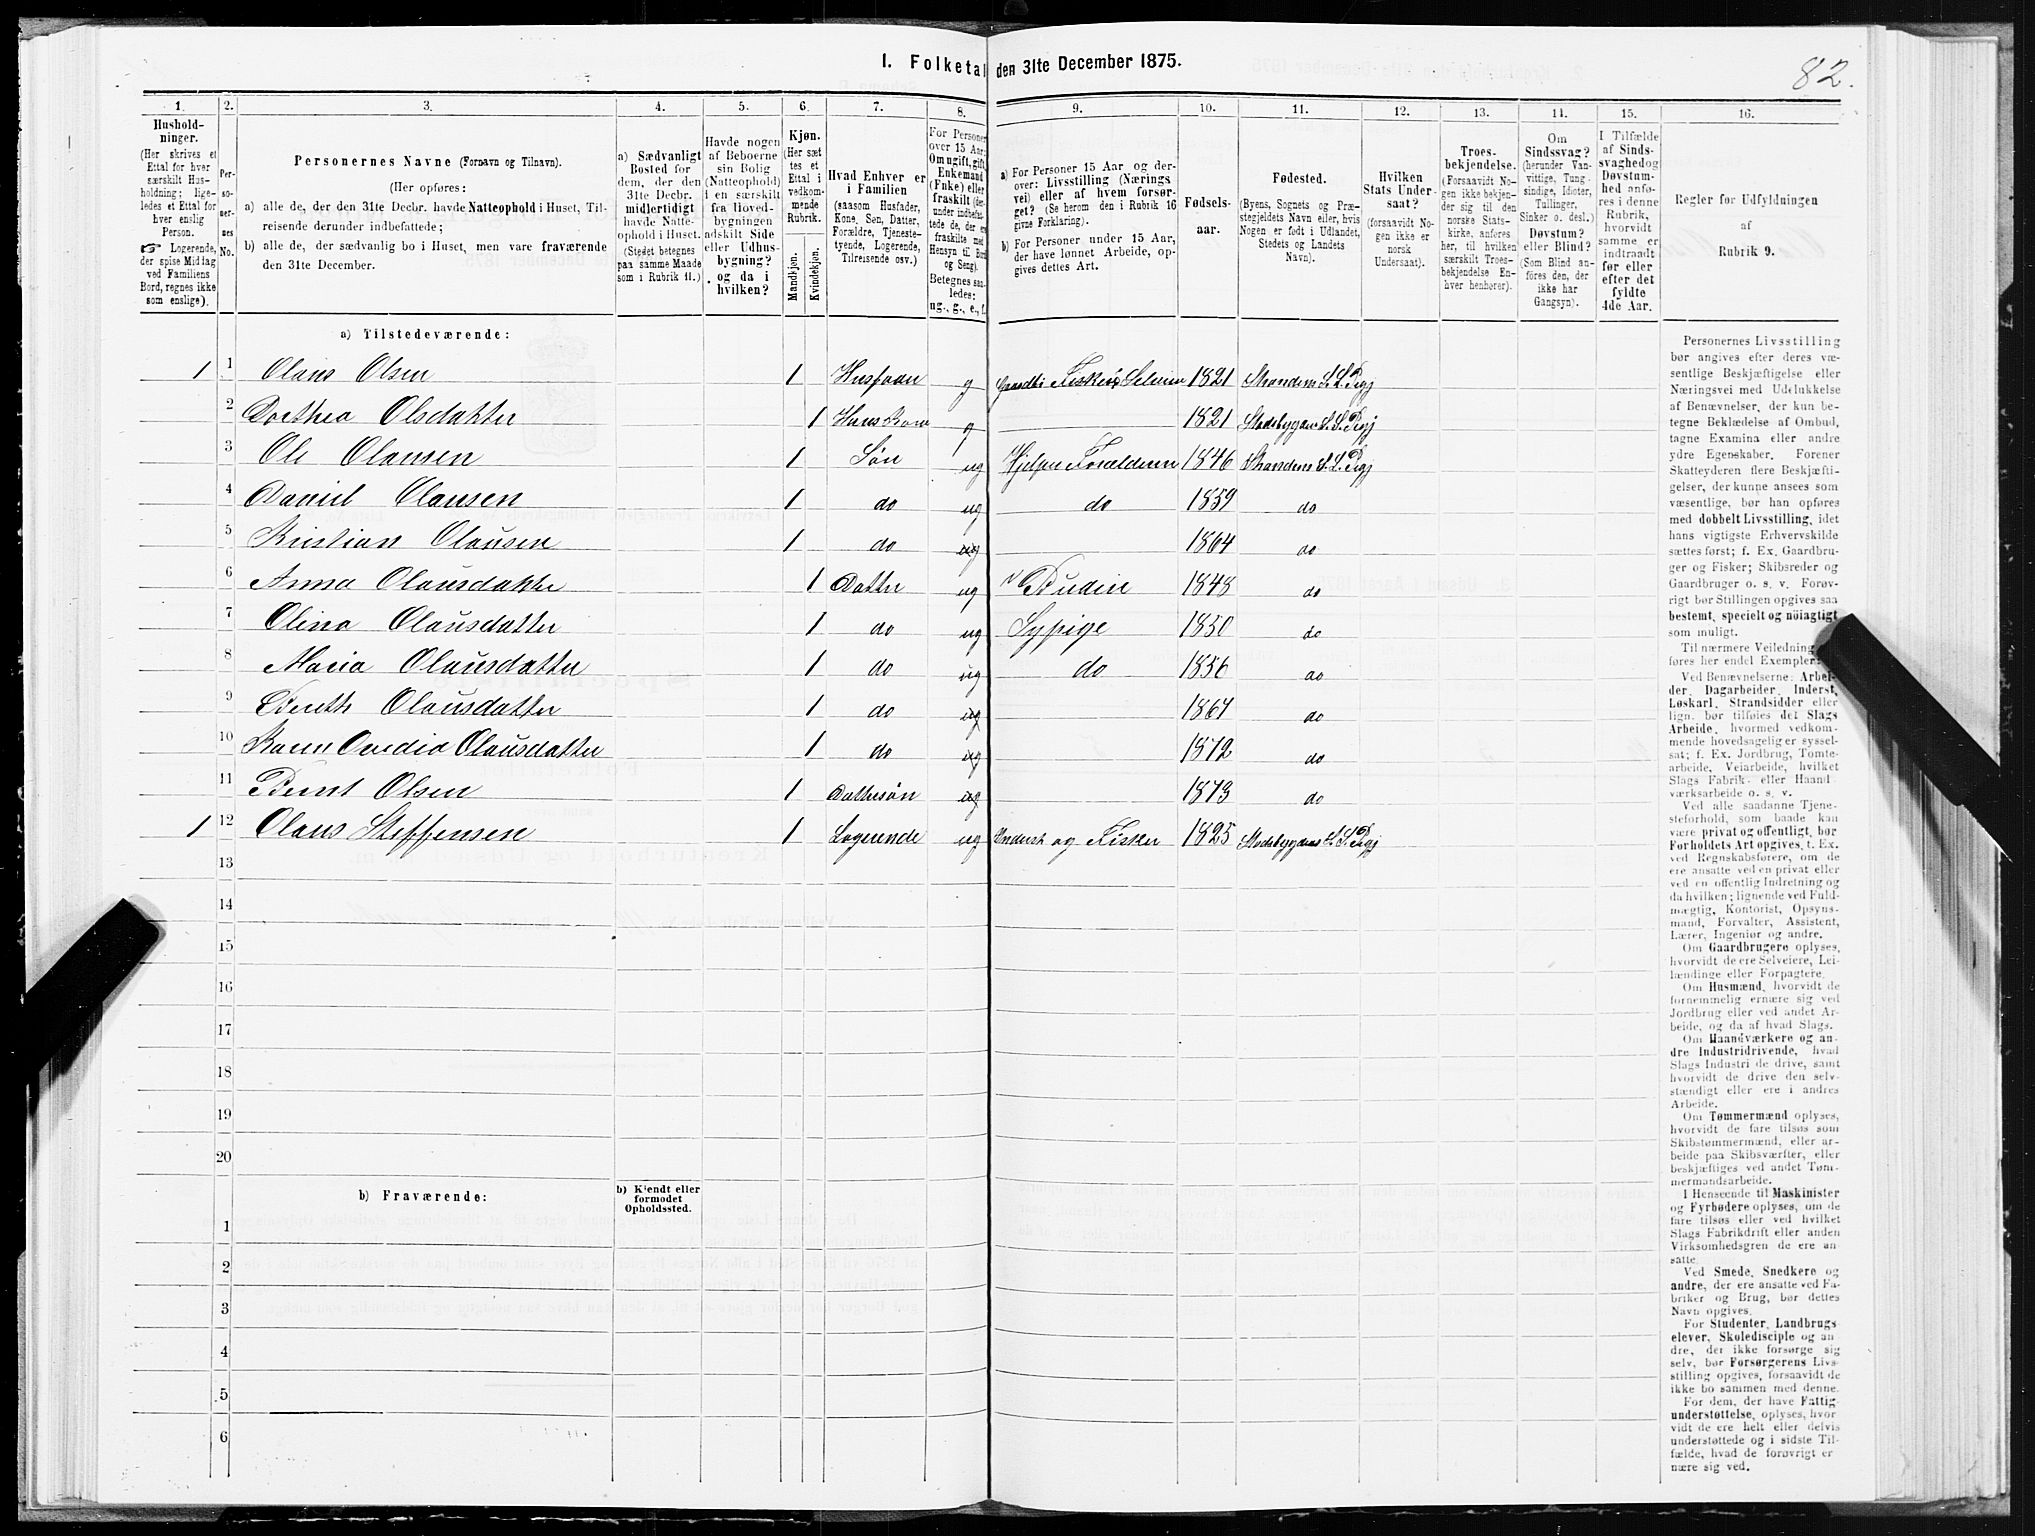 I. Folketal den 31te December 1875.
82.
1.
2.
3.
4.
5.
6.
7.
8.
9.
10.
11.
12.
13.
14.
15.
16.
Hushold-
ninger.
(Her skrives et
Ettal for hver
særskilt Hus-
holdning; lige-
ledes et Ettal for
hver enslig
Person.
☞ Logerende,
der spise Middag
ved Familiens
Bord, regnes ikke
som enslige).
Per-
so-
ner-
nes
No.
Personernes Navne (Fornavn og Tilnavn).
(Her opføres:
a) alle de, der den 31te Decbr. havde Natteophold i Huset, Til-
reisende derunder indbefattede;
b) alle de, der sædvanlig bo i Huset, men vare fraværende
den 31te December.
a) Sædvanligt
Bosted for
dem, der den
31te Decbr.
midlertidigt
havde Natte-
ophold i Huset.
(Stedet betegnes
paa samme Maade
som i Rubrik 11.)
Havde nogen
af Beboerne
sin Bolig
(Natteophold)
i en særskilt
fra Hoved-
bygningen
adskilt Side
eller Udhus-
bygning?
og da i
hvilken?
Kjøn.
(Her sæt
tes et
Ettal i
vedkom-
mende
Rubrik.
Mandkjøn.
Kvindekjøn.
Hvad Enhver er
i Familien
(saasom Husfader,
Kone, Søn, Datter,
Forældre, Tjeneste-
tyende, Logerende,
Tilreisende osv.)
For Personer
over 15 Aar:
Om ugift, gift,
Enkemand
(Enke) eller
fraskilt (der-
under indbefat-
tede de, der ere
fraskilte med
Hensyn til Bord
og Seng).
Betegnes saa-
ledes:
ug., g., e., f.
a) For Personer 15 Aar og der-
over: Livsstilling (Nærings
vei) eller af hvem forsør-
get? (Se herom den i Rubrik 16
givne Forklaring).
b) For Personer under 15 Aar,
der have lønnet Arbeide, op-
gives dettes Art.
Fødsels-
aar.
Fødested.
(Byens, Sognets og Præ-
stegjeldets Navn eller, hvis
Nogen er født i Udlandet,
Stedets og Landets
Navn).
Hvilken
Stats Under-
saat?
(forsaavidt No-
gen ikke er
norsk
Undersaat).
Troes-
bekjendelse.
(Forsaavidt No-
gen ikke bekjen-
der sig til den
norske Stats-
kirke, anføres
her, til hvilken
særskilt Troes-
bekjendelse En-
hver henhører).
Om
Sindssvag?
(herunder Van-
vittige, Tung-
sindige, Idioter,
Tullinger,
Sinker o. desl.)
Døvstum?
eller Blind?
(Som Blind an-
føres den, der
ikke har
Gangsyn).
I Tilfælde
af Sinds-
svaghed og
Døvstum-
hed anfø-
res i denne
Rubrik,
hvorvidt
samme er
indtraadt
før eller
efter det
fyldte
4de Aar.
Regler for Udfyldningen
af
Rubrik 9.
a) Tilstedeværende:
1 1 Olaus Olsen 1 Husfader g Gaardbr Fisker Seleier 1821 Stranden S. L. Pigj
2 Dorthea Olsdatter 1 Hans Kone g 1821 Stadsbygden S. S. Pigj
3 Ole Olausen 1 Søn ug Hjelper Forælderen 1846 Stranden S. L. Pigj
4 Daniel Olausen 1 do ug do 1859 do
5 Kristian Olausen 1 do ug 1864 do
6 Anna Olausdatter 1 Datter ug Budeie 1848 do
7 Olina Olausdatter 1 do ug Sypige 1850 do
8 Maria Olausdatter 1 do ug do 1856 do
9 Bereth Olausdatter 1 do ug 1867 do
10 Karen Ovedia Olausdatter 1 do ug 1872 do
11 Bernt Olsen 1 Dattersøn ug 1873 do
1 12 Olaus Steffensen 1 Logerende ug Inderst og Fisker 1825 Stadsbygden S. S. Pigj
13
14
15
16
17
18
19
20
b) Fraværende:
b) Kjendt eller
formodet
Opholdssted.
1
2
3
4
5
6
Personernes Livsstilling
bør angives efter deres væ-
sentlige Beskjæftigelse eller
Næringsvei med Udelukkelse
af Benævnelser, der kun be-
tegne Beklædelse af Ombud,
tagne Examina eller andre
ydre Egenskaber. Forener
Skatteyderen flere Beskjæfti-
gelser, der kunne ansees som
væsentlige, bør han opføres
med dobbelt Livsstilling, idet
hans vigtigste Erhvervskilde
sættes først; f. Ex. Gaardbru-
ger og Fisker; Skibsreder og
Gaardbruger o. s. v. Forøv-
rigt bør Stillingen opgives saa
bestemt, specielt og nöiagtigt
som muligt.
Til nærmere Veiledning
føres her endel Exempler:
Ved Benævnelserne: Arbei-
der, Dagarbeider, Inderst,
Løskarl, Strandsidder eller
lign. bør tilføies det Slags
Arbeide, hvormed vedkom-
mende hovedsagelig er syssel-
sat; f. Ex. Jordbrug, Tomte-
arbeide, Veiarbeide, hvilket
Slags Fabrik- eller Haand-
værksarbeide o. s. v.
Ved alle saadanne Tjene-
steforhold, som baade kan
være privat og offentligt, bør
Forholdets Art opgives, t. Ex.
ved Regnskabsførere, om de
ere ansatte ved en privat eller
ved en offentlig Indretning og
da hvilken; lignende ved Fuld-
mægtig, Kontorist, Opsyns-
mand, Forvalter, Assistent,
Lærer, Ingeniør og andre.
Om Gaardbrugere oplyses,
hvorvidt de ere Selveiere, Lei-
lændinge eller Forpagtere.
Om Husmænd, hvorvidt de
fornemmelig ernære sig ved
Jordbrug eller ved andet Ar-
beide, og da af hvad Slags.
Om Haandværkere og an-
dre Industridrivende, hvad
Slags Industri de drive, samt
hvorvidt de drive den selv-
stændigt eller ere i andres
Arbeide.
Om Tømmermænd oplyses,
hvorvidt de fare tilsøs som
Skibstømmermænd, eller ar-
beide paa Skibsværfter, eller
beskjæftiges ved andet Tøm-
mermandsarbeide.
I Henseende til Maskinister
og Fyrbødere oplyses, om de
fare tilsøs eller ved hvilket
Slags Fabrikdrift eller anden
Virksomhedsgren de ere an-
satte.
Ved Smede, Snedkere og
andre, der ere ansatte ved Fa-
briker og Brug, bør dettes
Navn opgives.
For Studenter, Landbrugs-
elever, Skoledisciple og an-
dre, der ikke forsørge sig
selv, bør Forsørgerens Livs-
stilling opgives, forsaavidt de
ikke bo sammen med denne.
For dem, der have Fattig-
understøttelse, oplyses, hvor-
vidt de ere helt eller delvis
understøttede og i sidste Til-
fælde, hvad de forøvrigt er-
nære sig ved.